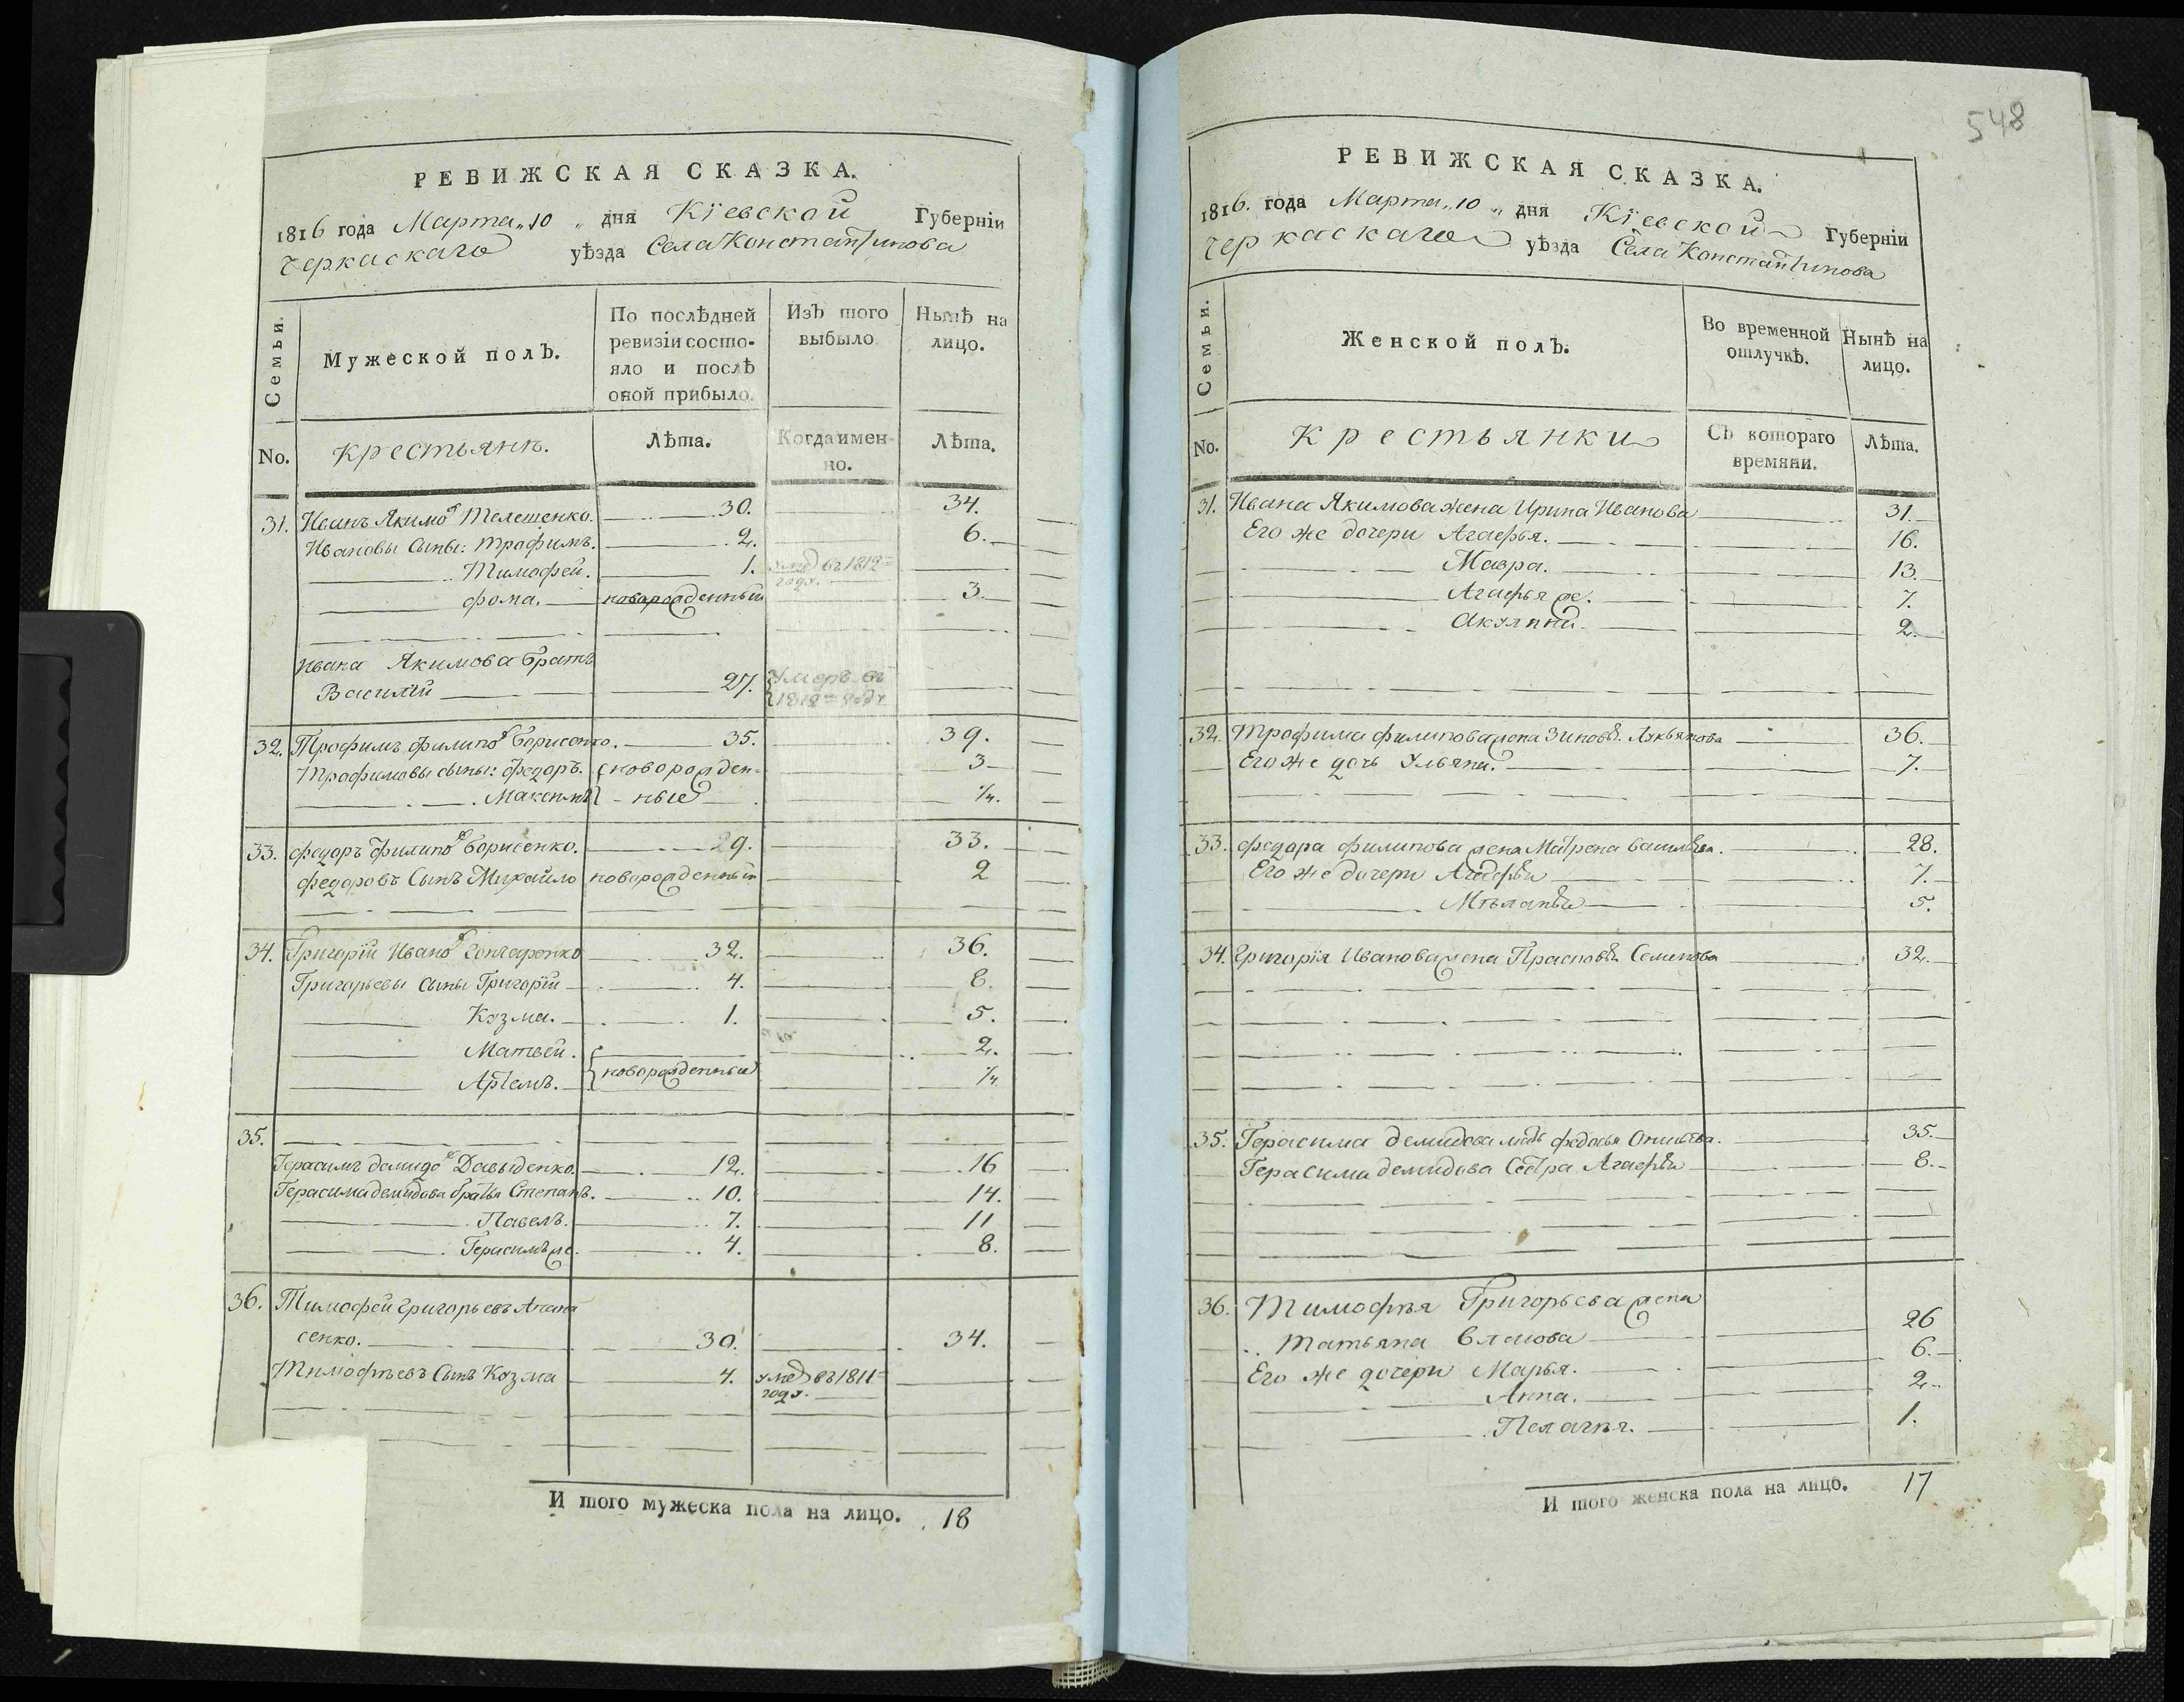 548
РЕВИЖСКАЯ СКАЗКА.
1816 года Марта „10„ дня Кіевской Губерніи
Черкаскаго уѣзда Села Константинова
Семьи.
Мужеской полъ.
По послѣдней ревизіи состояло и послѣ оной прибыло.
Изъ того выбыло
Нынѣ на лицо.
No.
Крестьянъ.
Лѣта.
Когда именно.
Лѣта.
31. Иванъ Якимов Телешенко. 30. 34.
Ивановы Сыны: Трофимъ. 2. 6.
Тимофей. 1. умер въ 1812 году.
Фома. новорожденный 3.
Ивана Якимова Братъ
Василій 27. Умеръ въ 1812 годе
32. Трофимъ Филипов Борисенко. 35. 39.
Трофимовы сыны: Федоръ. новорожден- 3
Максимъ ные 1/4.
33. Федоръ Филипов Борисенко. 29. 33.
Федоровъ Сынъ Михайло новорожденный 2
34. Григорій Иванов Гончаренко 32. 36.
Григорьевы Сыны Григорій 4. 8.
Козма. 1. 5.
Матвей. 2.
новорожденные
Артемъ. 1/4
35.
Герасимъ Демидов Давыденко. 12. 16
Герасима Демидова братья Степанъ. 10. 14.
Павелъ. 7. 11
Герасимъ же. 4. 8.
36. Тимофей Григорьевъ Апана
сенко. 30. 34.
Тимофѣевъ Сынъ Козма 4. умер въ 1811 году.
И того мужеска пола на лицо. 18
РЕВИЖСКАЯ СКАЗКА.
1816. года Марта „10„ дня Кіевской Губерніи
Черкаскаго уѣзда Села Константинова
Семьи.
Женской полъ.
Во временной отлучкѣ.
Нынѣ на лицо.
No.
Крестьянки
Съ котораго времяни.
Лѣта.
31. Ивана Якимова жена Ирина Иванова 31.
Его же дочери Агафья. 16.
Мавра. 13.
Агафья же. 7.
Акулина. 2.
32. Трофима Филипова жена Зиновья Лукьянова 36.
Его же дочь Ульяна. 7.
33. Федора Филипова жена Матрена Васильева. 28.
Его же дочери Агафья 7.
Мѣланья 5.
34. Григорія Иванова жена Прасковья Семенова 32.
35. Герасима Демидова мать Федосья 35.
Герасима Демидова Сестра Агафья 8.
36. Тимофѣя Григорьева жена
Татьяна Власова 26
Его же дочери Марья. 6.
Анна. 2.
Пелагѣя. 1.
И того женска пола на лицо. 17